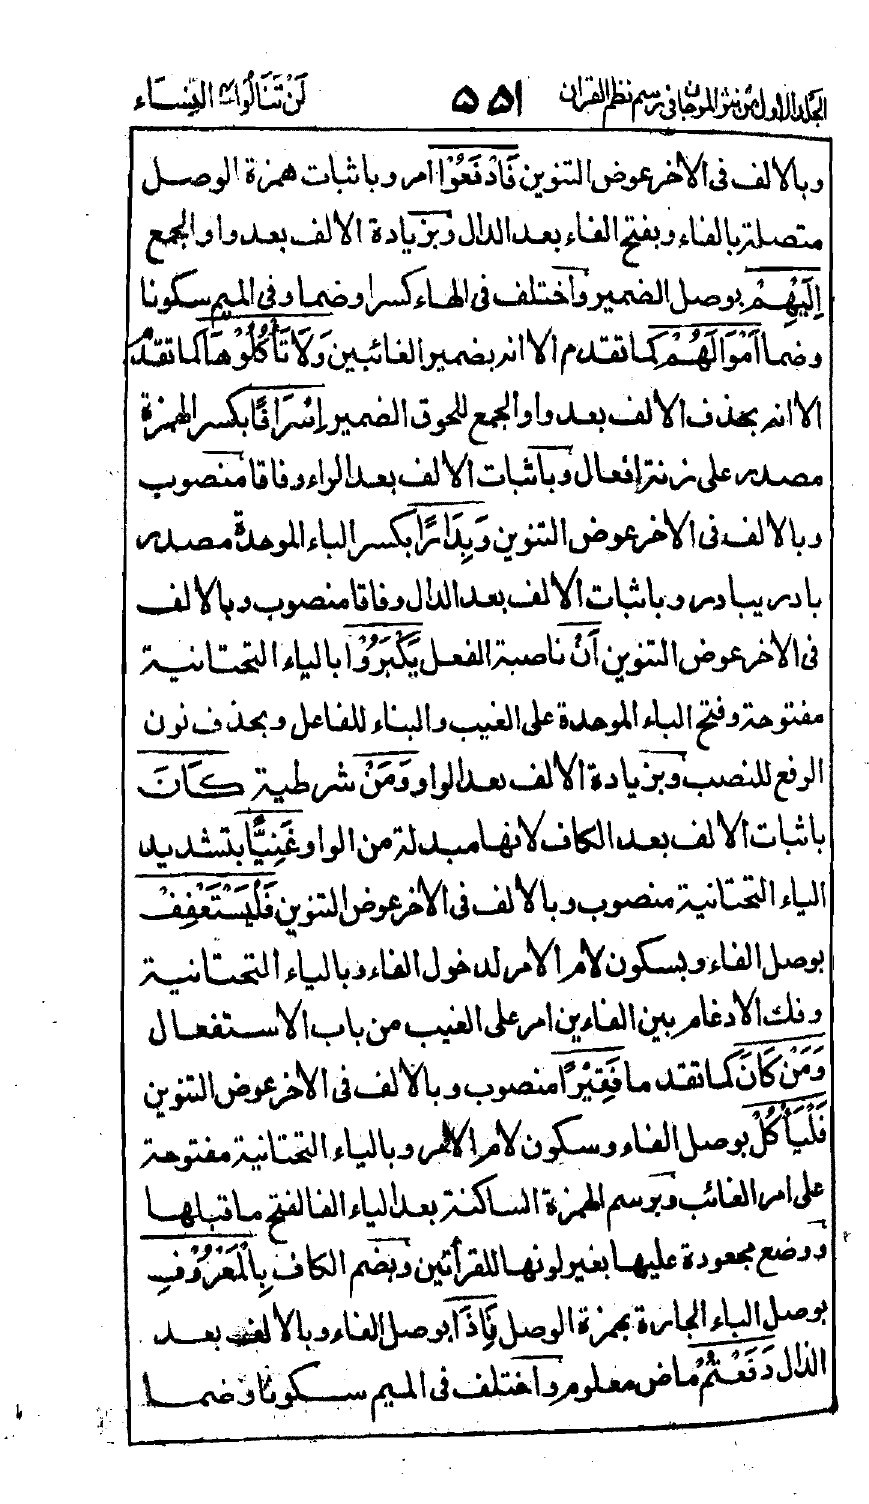 الجلد الاول من نثر المرجان في رسم نظم القران ٥٥١ لَنْ تَنَالُوا ٤ النِّسَاء
وبالالف فى الاخر عوض التنوين فَادْفَعُوْا امر وباثبات همزة الوصل
متصلة بالفاء وبفتح الفاء بعد الدال وبزيادة الالف بعد واو الجمع
اِلَيْهِمْ بوصل الضمير واختلف فى الهاء كسرا وضما وفى الميم سكونا
وضما اَمْوَالَهُمْ كما تقدم الا انه بضمير الغائبين وَلَا تَاْكُلُوْهَا كما تقدم
الا انه بحذف الالف بعد واو الجمع للحوق الضمير اِسْرَافًا بكسر الهمزة
مصدر على زنة إفعال وباثبات الالف بعد الراء وفاقا منصوب
وبالالف فى الاخر عوض التنوين وَبِدَارًا بكسر الباء الموحدة مصدر
بادر يبادر وباثبات الالف بعد الدال وفاقا منصوب وبالالف
فى الاخر عوض التنوين اَنْ ناصبة الفعل يَكْبَرُوْا بالياء التحتانية
مفتوحة وفتح الباء الموحدة على الغيب والبناء للفاعل وبحذف نون
الرفع للنصب وبزيادة الالف بعد الواو وَمَنْ شرطية كَانَ
باثبات الالف بعد الكاف لانها مبدلة من الواو غَنِيًّا بتشديد
الياء التحتانية منصوب وبالالف فى الاخر عوض التنوين فَلْيَسْتَعْفِفْ
بوصل الفاء وبسكون لام الامر لدخول الفاء وبالياء التحتانية
وفك الادغام بين الفاءين امر على الغيب من باب الاستفعال
وَمَنْ كَانَ كما تقدما فَقِيْرًا منصوب وبالالف فى الاخر عوض التنوين
فَلْيَاْكُلْ بوصل الفاء وسكون لام الامر وبالياء التحتانية مفتوحة
على امر الغائب وبرسم الهمزة الساكنة بعد الياء الفا لفتح ما قبلها
ووضع مجعودة عليها بغير لونها للقرأتين وبضم الكاف بِالْمَعْرُوْفِ
بوصل الباء الجارة بهمزة الوصل فَاِذَا بوصل الفاء وبالالف بعد
الذال دَفَعْتُمْ ماض معلوم واختلف فى الميم سكونا وضما